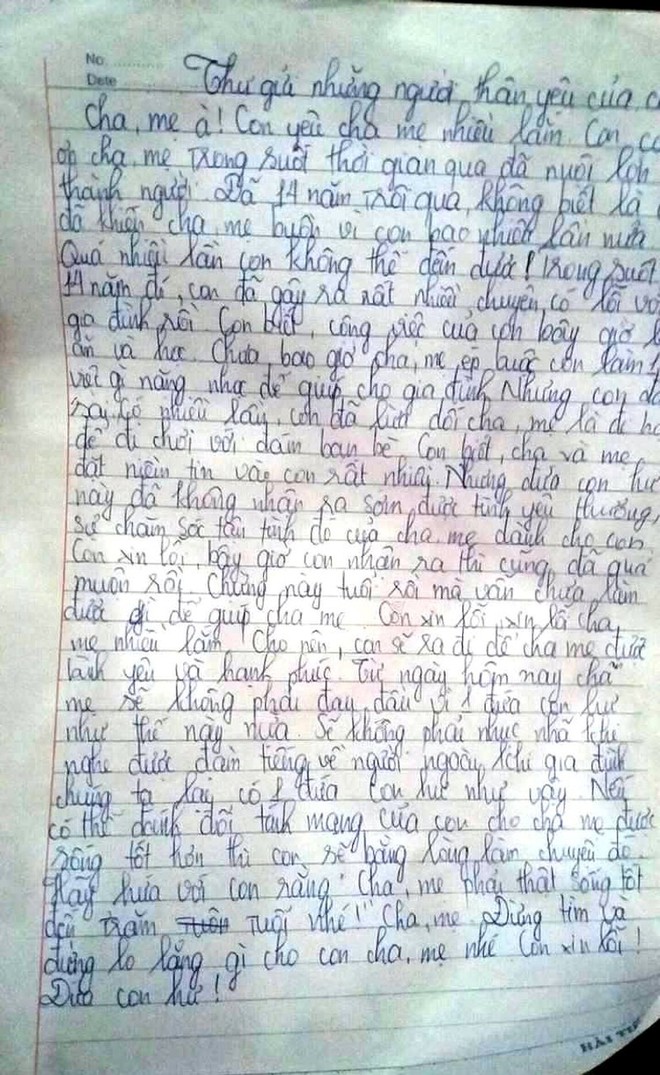 No
Date
Thư gửi những người thân yêu của c
Cha, mẹ à! Con yêu cha mẹ nhiều lắm. Con cả
ơn cha, mẹ trong suốt thời gian qua đã nuôi lớn
thành người. Đã 14 năm trôi qua, không biết là
đã khiến cha, mẹ buồn vì con bao nhiêu lần nữa
Quá nhiều lần con không thể đếm được! Trong suốt
14 năm đó, con đã gây ra rất nhiều chuyện có lỗi với
gia đình rồi. Con biết, công việc của con bây giờ l
ăn và học. Chưa bao giờ cha, mẹ ép buộc con làm 1
việc gì nặng nhọc để giúp cho gia đình. Nhưng con đã
sai. Có nhiều lần, con đã lừa dối cha, mẹ là đi họ
để đi chơi với đám bạn bè. Con biết, cha và mẹ
đặt niềm tin vào con rất nhiều. Nhưng đứa con hư
này đã không nhận ra sớm được tình yêu thương,
sự chăm sóc tận tình đó của cha, mẹ dành cho con.
Con xin lỗi, bây giờ con nhận ra thì cũng đã quá
muộn rồi. Chừng này tuổi rồi mà vẫn chưa làm
được gì để giúp cha mẹ. Con xin lỗi, xin lỗi cha,
mẹ nhiều lắm! Cho nên, con sẽ ra đi để cha mẹ được
bình yên và hạnh phúc. Từ ngày hôm nay cha
mẹ sẽ không phải đau đầu vì 1 đứa con hư
như thế này nữa. Sẽ không phải nhục nhã khi
nghe được đàm tiếng về người ngoài khi gia đình
chúng ta lại có 1 đứa con hư như vậy. Nếu
có thể đánh đổi tính mạng của con cho cha mẹ được
sống tốt hơn thì con sẽ bằng lòng làm chuyện đó.
Hãy hứa với con rằng "Cha, mẹ phải thật sống tốt
đến trăm tuổi nhé!" Cha, mẹ Đừng tìm và
đừng lo lắng gì cho con cha, mẹ nhé. Con xin lỗi!
Đứa con hư!
HẢI TI